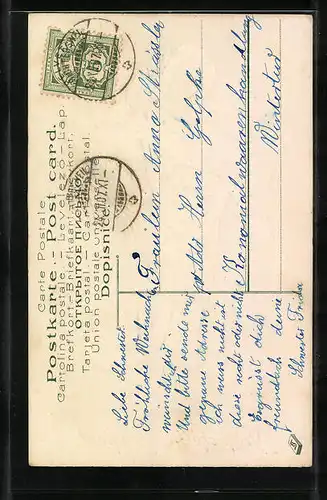 Carte Postale
Postkarte. - Post card.
Cartolina postale - Levelező-Lap
Brefkort-Briefkaart-Brevkort.
ОТКРЫТОЕ ПИСЬМО
Tarjeta postal. - Carta postal.
Union postale
Dopisnice
Fräulein Anna
Adr. Herrn
Kolonialwaarenhandlung
Winterthur
Liebe Schwester!
Fröhliche Weihnacht
wünscht dir
Und bitte sende mir
genaue Adresse
Ich weiss nicht ist
diese recht oder nicht
Es grüsst dich
freundlich deine
Schwester Frieda